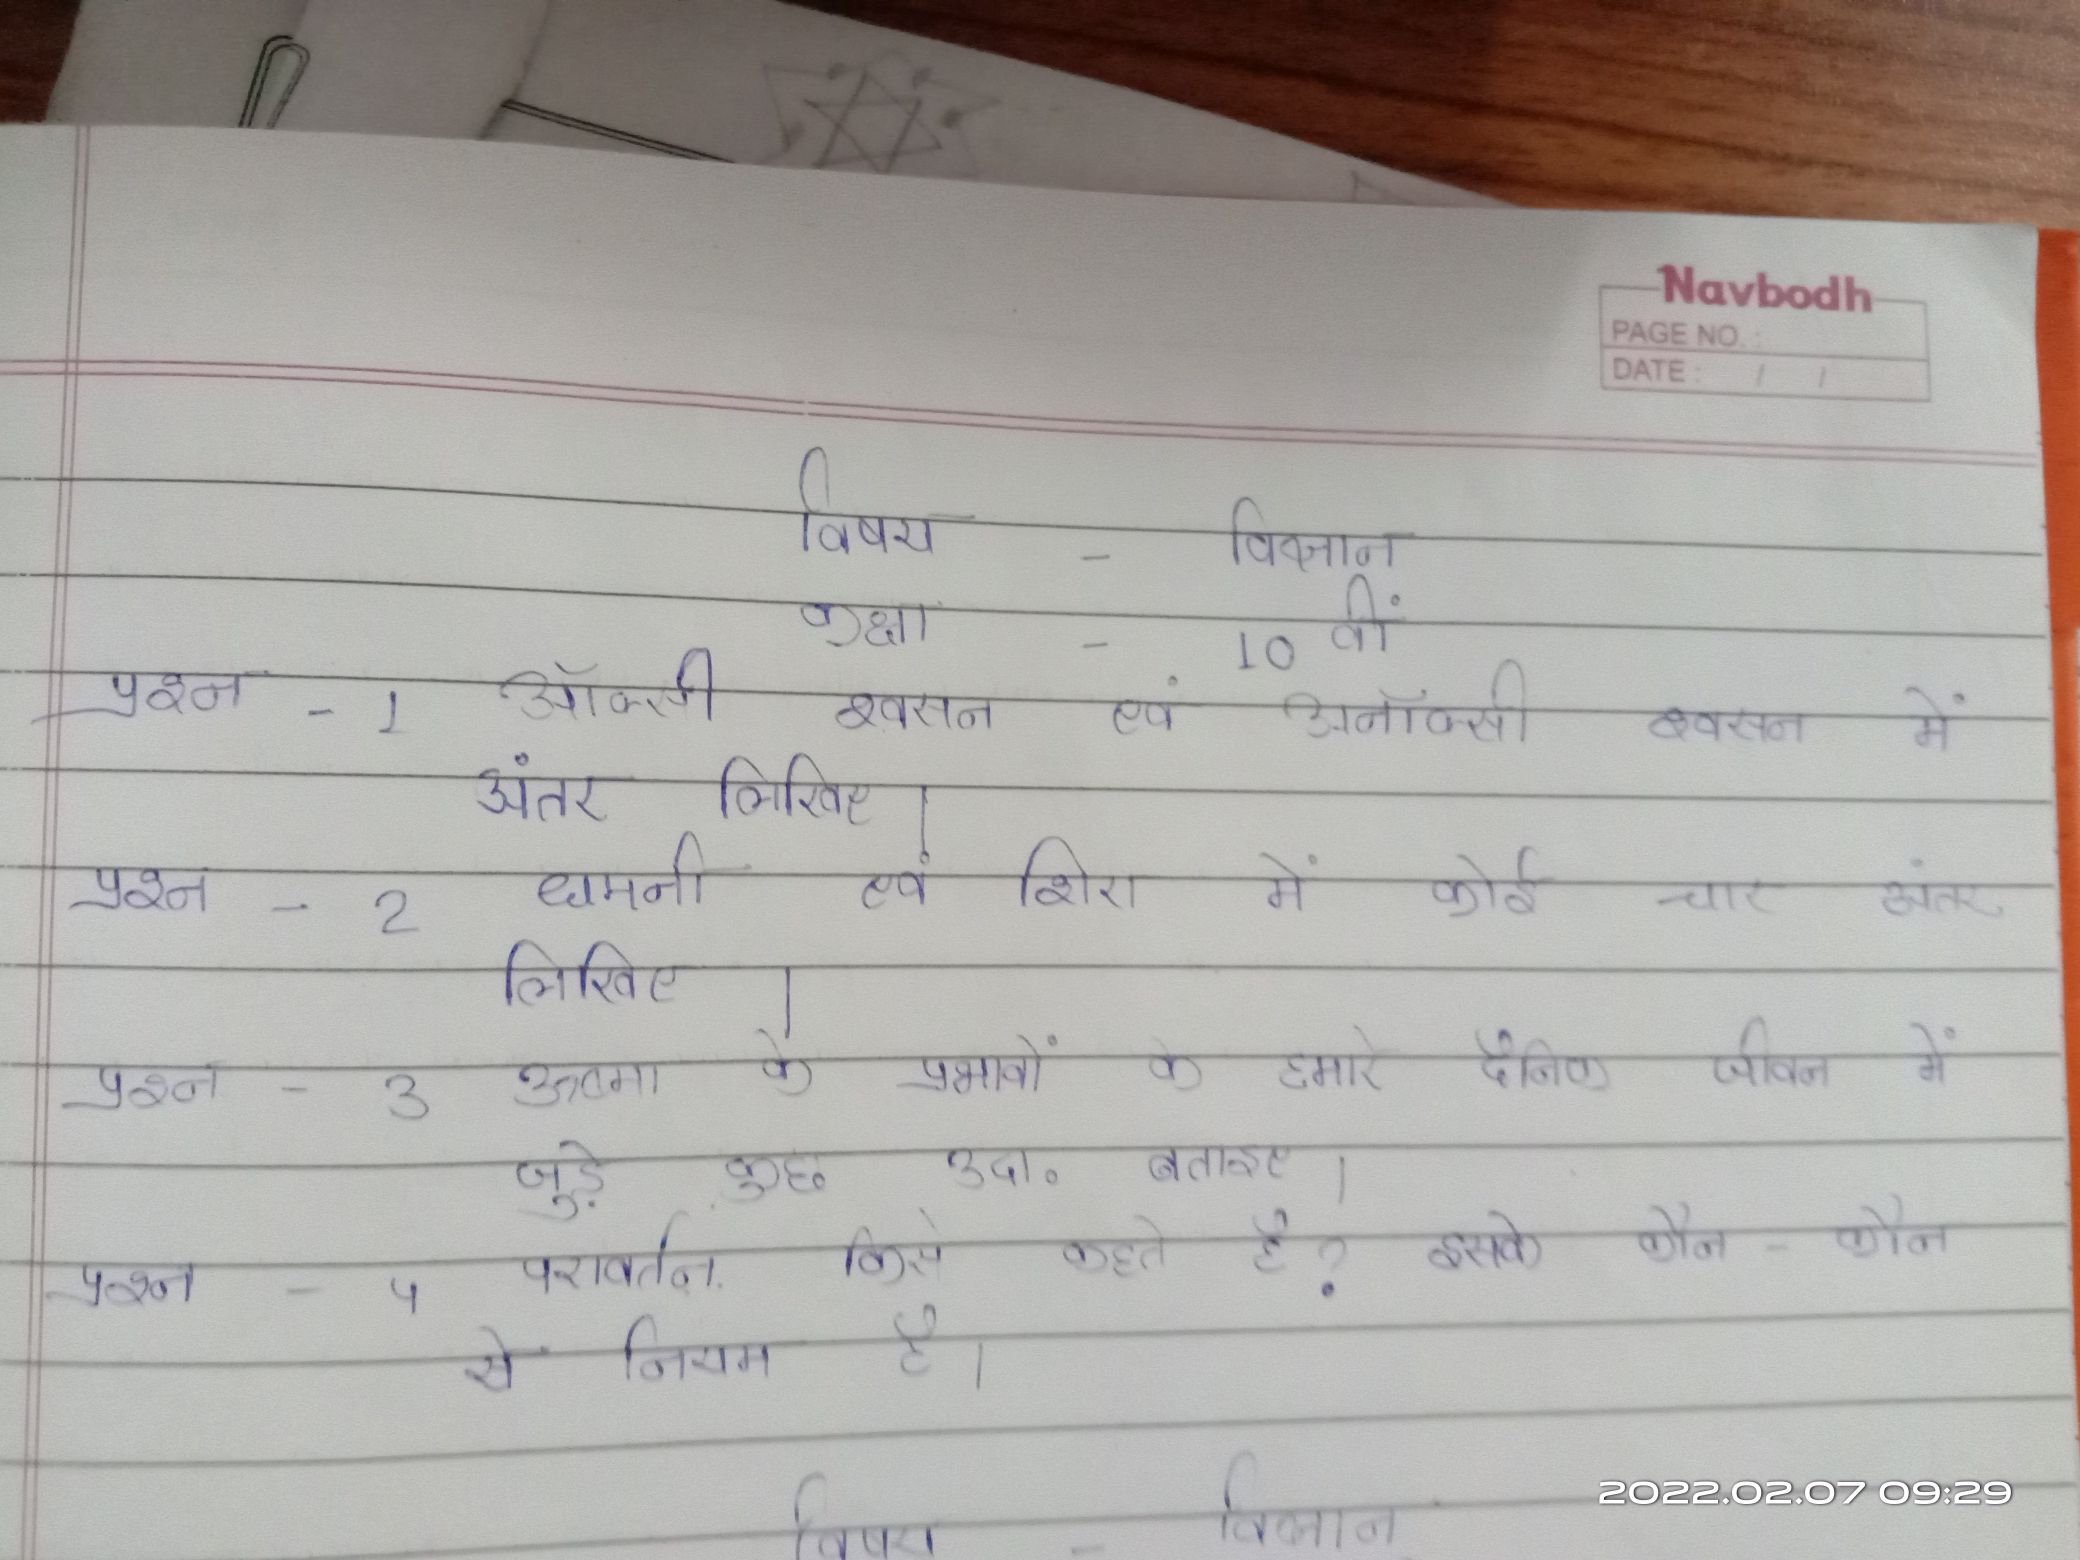 Navbodh
PAGE NO. :
DATE : / /
विषय - विज्ञान
कक्षा - 10 वीं
प्रश्न - 1 ऑक्सी श्वसन एवं अनॉक्सी श्वसन में
अंतर लिखिए।
प्रश्न - 2 धमनी एवं शिरा में कोई चार अंतर
लिखिए।
प्रश्न - 3 ऊष्मा के प्रभावों के हमारे दैनिक जीवन में
जुड़े कुछ उदा. बताइए।
प्रश्न - 4 परावर्तन किसे कहते है? इसके कौन - कौन
से नियम है।
विषय - विज्ञान
2022.02.07 09:29